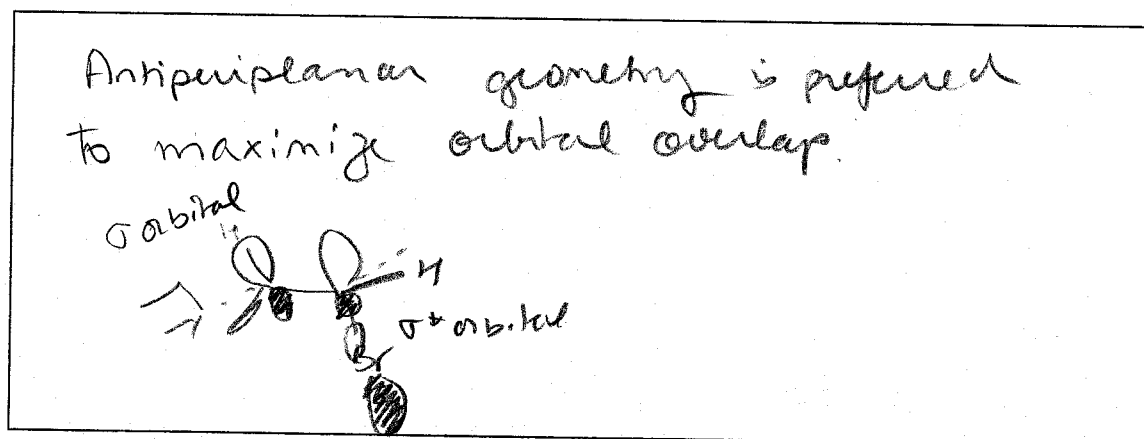 Antiperiplanar geometry is preferred
to maximize orbital overlap.
σ orbital
H
H
σ* orbital
Br